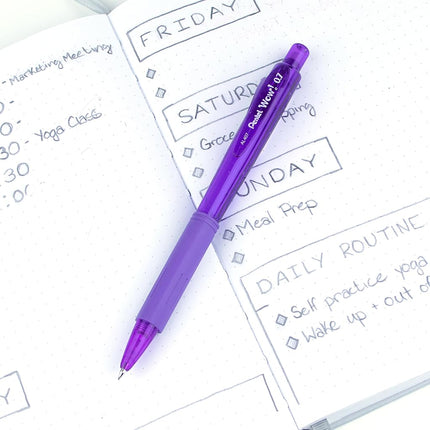 - Marketing Meeting
0-
30 - Yoga Class
:30
:0
FRIDAY
SATURD
Groce pping
UNDAY
Meal Prep
DAILY ROUTINE
Self practice yoga
Wake up + out of
Pentel Wow! 0.7
AL407
Y